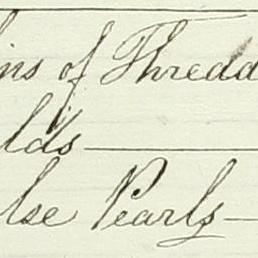 ins of Thredd
lds
lse Pearls